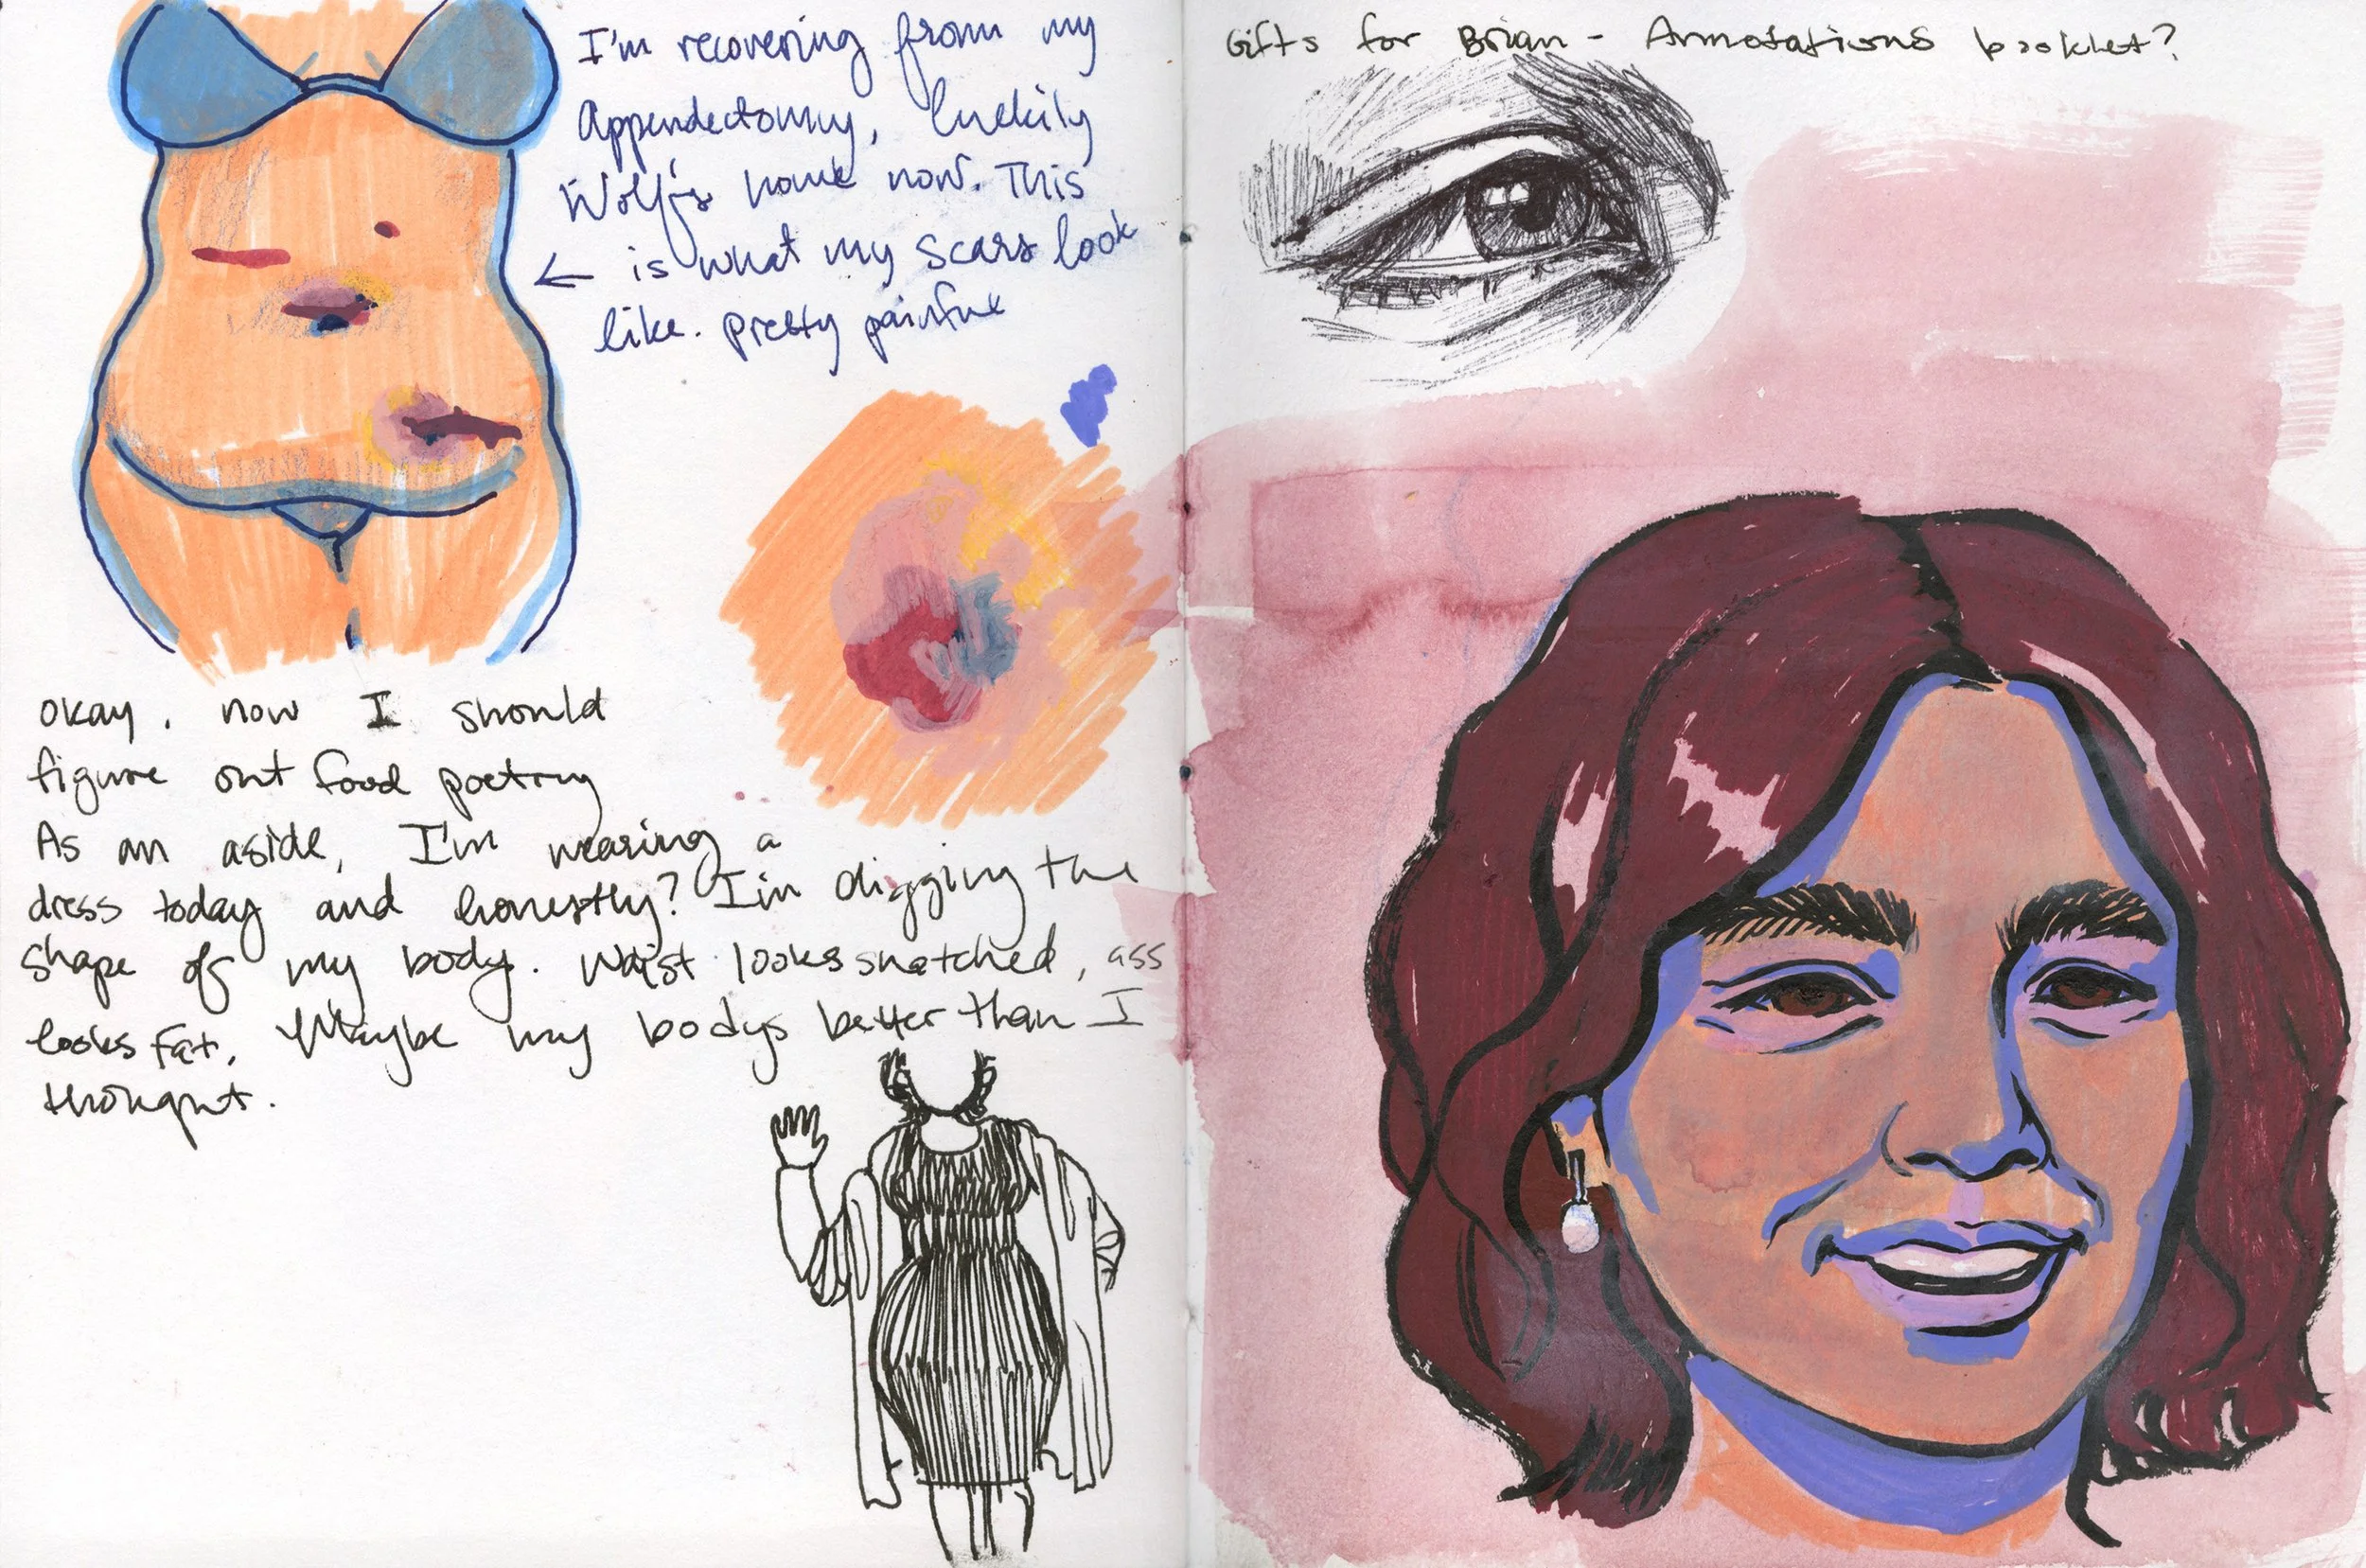 I'm recovering from my
Appendectomy, luckily
Wolf's home now. This
← is what my scars look
like. pretty painful
okay, now I should
figure out food poetry
As an aside, I'm wearing a
dress today and honestly? I'm digging the
shape of my body. Waist looks snatched, ass
looks fat. Maybe my bodys better than I
thought.
Gifts for Brian - Annotations booklet?